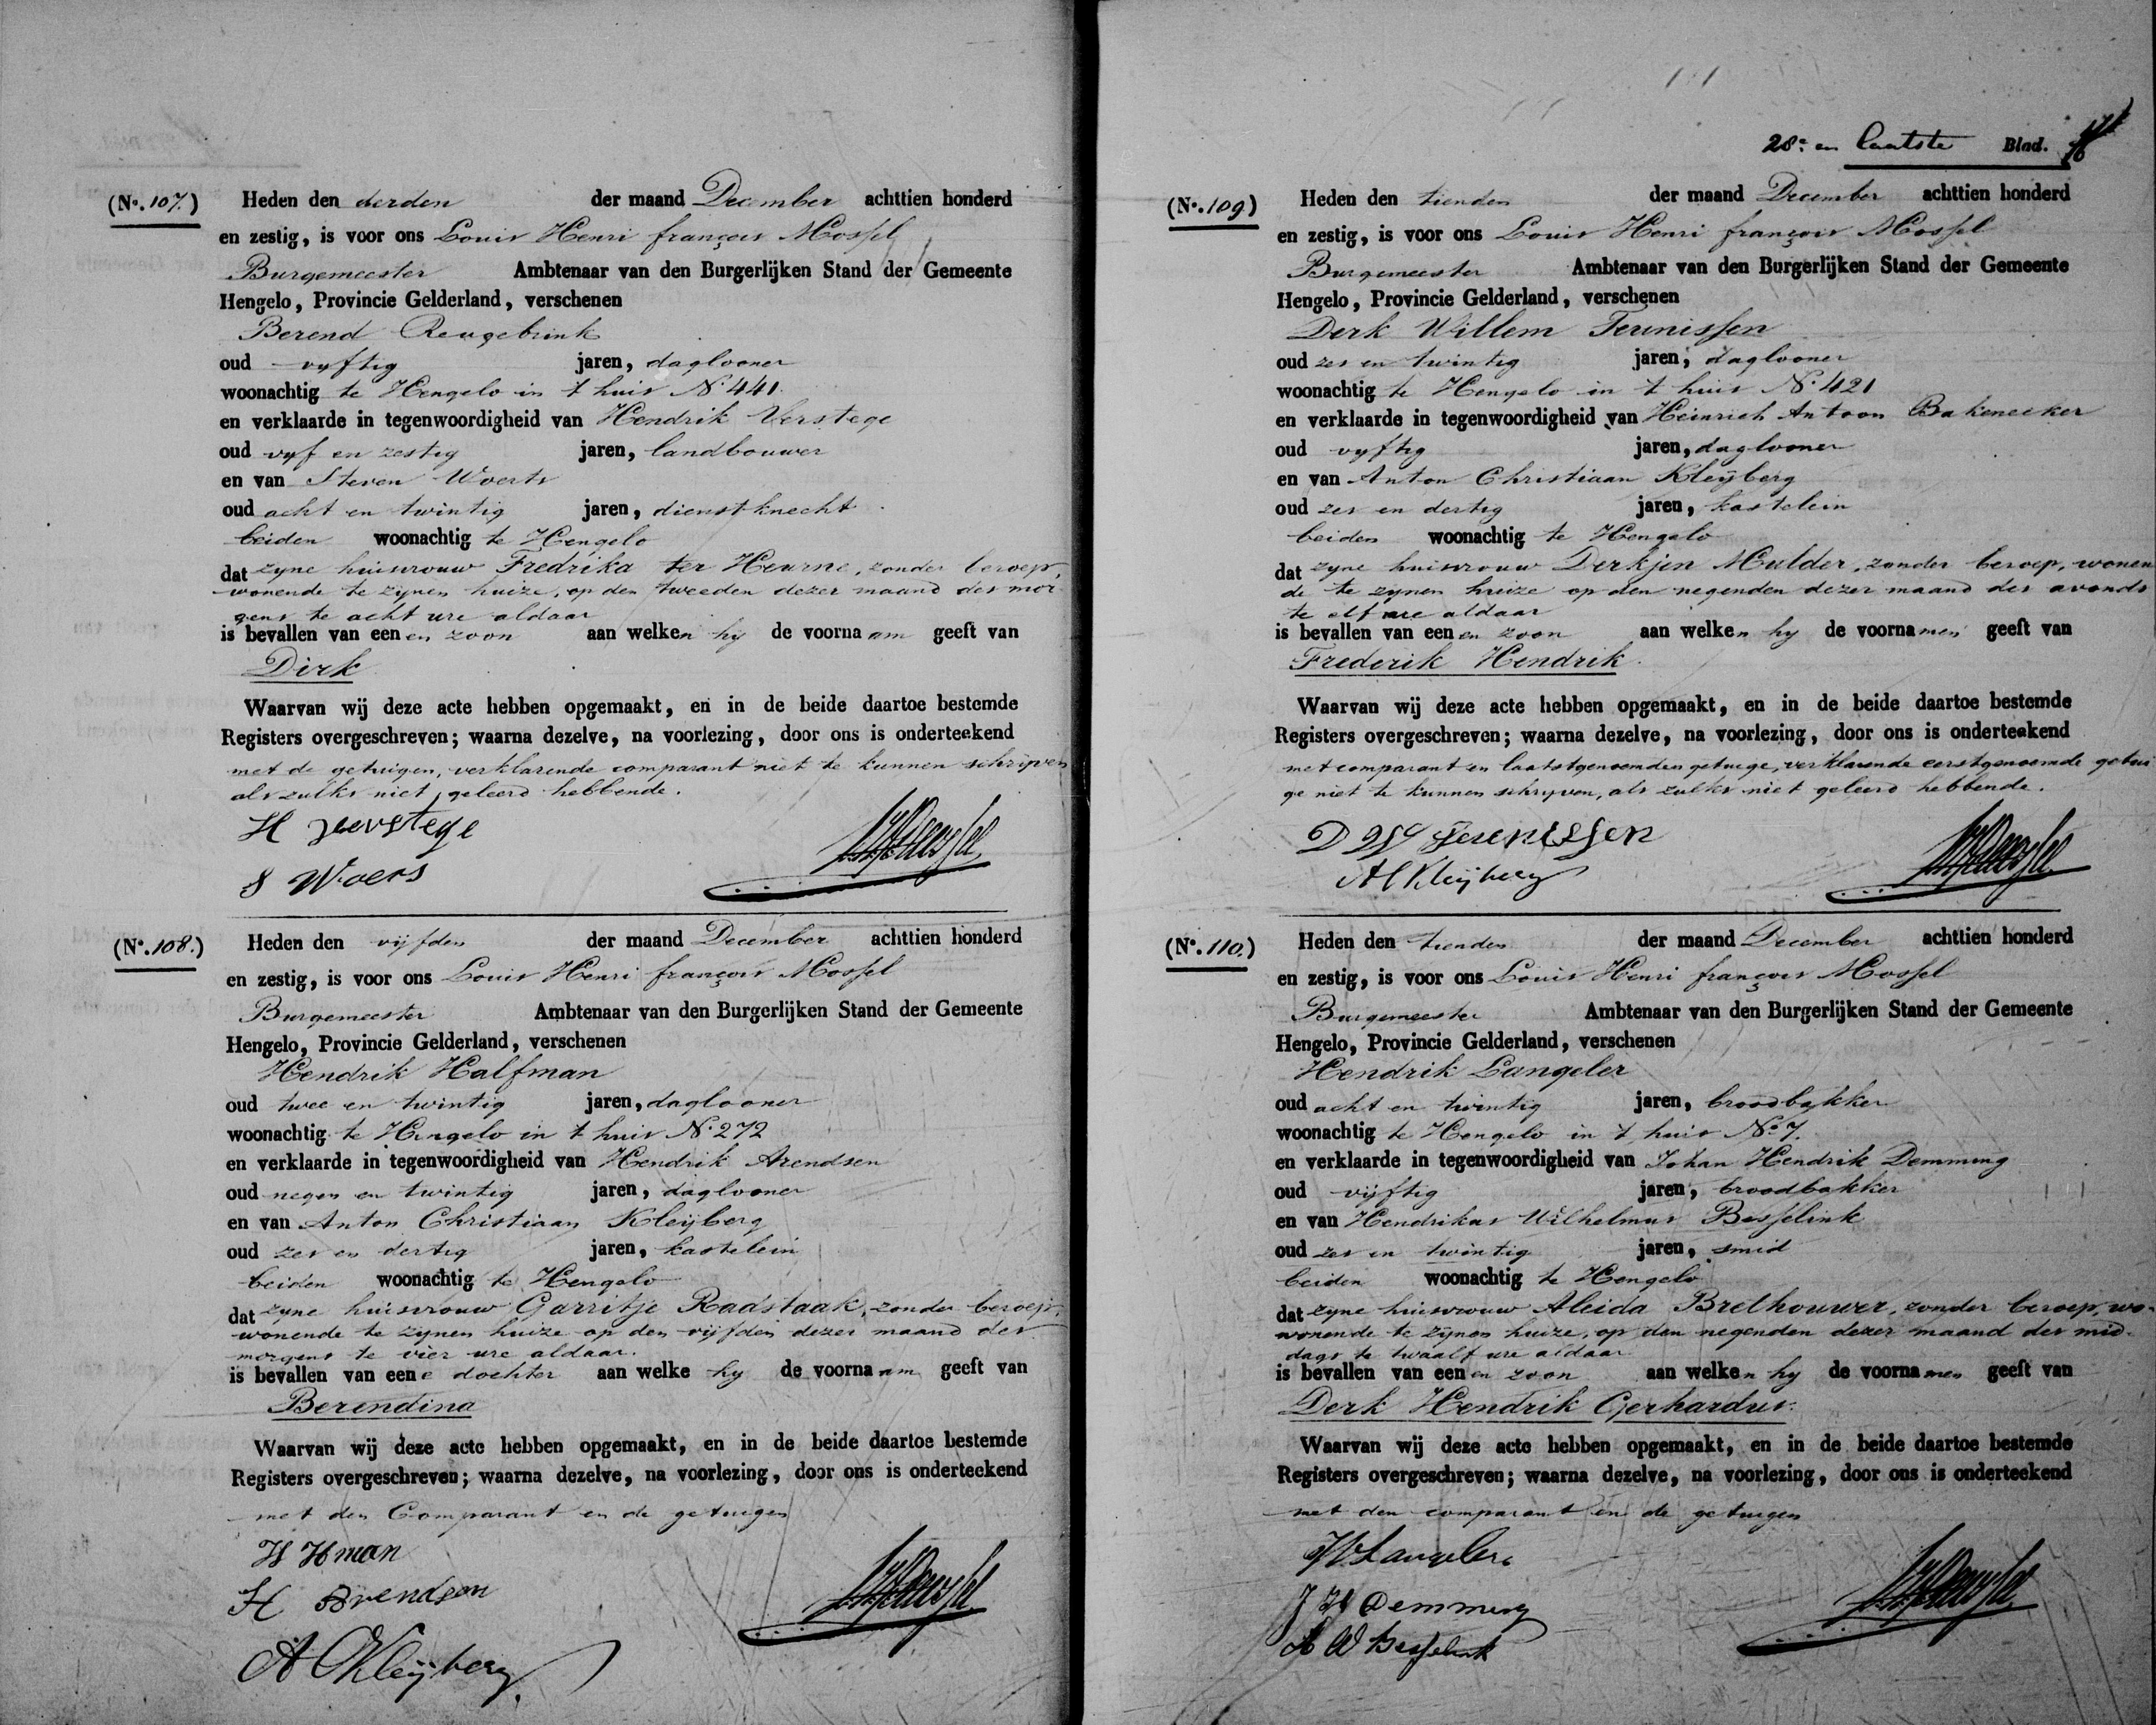 (No. 107.) Heden den derden der maand December achttien honderd
en zestig, is voor ons Louis Henri françois Mossel
Burgemeester Ambtenaar van den Burgerlijken Stand der Gemeente
Hengelo, Provincie Gelderland, verschenen
Berend Reugebrink
oud vyftig jaren, daglooner
woonachtig te Hengelo in 't huis No. 441.
en verklaarde in tegenwoordigheid van Hendrik Verstege
oud vyf en zestig jaren, landbouwer
en van Steven Woerts
oud acht en twintig jaren, dienstknecht.
beiden woonachtig te Hengelo
dat zyne huisvrouw Fredrika ter Heurne, zonder beroep,
wonende te zijnen huize, op den tweeden dezer maand des mor-
gens te acht ure aldaar
is bevallen van eenen zoon aan welken hy de voornaam geeft van
Dirk
Waarvan wij deze acte hebben opgemaakt, en in de beide daartoe bestemde
Registers overgeschreven; waarna dezelve, na voorlezing, door ons is onderteekend
met de getuigen, verklarende comparant niet te kunnen schrijven
als zulks niet geleerd hebbende.
H Verstege
S Woers
(No. 108.) Heden den vijfden der maand December achttien honderd
en zestig, is voor ons Louis Henri françois Mossel
Burgemeester Ambtenaar van den Burgerlijken Stand der Gemeente
Hengelo, Provincie Gelderland, verschenen
Hendrik Halfman
oud twee en twintig jaren, daglooner
woonachtig te Hengelo in 't huis No. 272
en verklaarde in tegenwoordigheid van Hendrik Arendsen
oud negen en twintig jaren, daglooner
en van Anton Christiaan Kleijberg
oud zes en dertig jaren, kastelein
beiden woonachtig te Hengelo
dat zyne huisvrouw Garritje Radstaak, zonder beroep,
wonende te zijnen huize op den vijfden dezer maand des
morgens te vier ure aldaar.
is bevallen van eene dochter aan welke hy de voornaam geeft van
Berendina
Waarvan wij deze acte hebben opgemaakt, en in de beide daartoe bestemde
Registers overgeschreven; waarna dezelve, na voorlezing, door ons is onderteekend
met den Comparant en de getuigen
H Hman
H Arendsen
A C Kleijberg
28e en laatste Blad.
(No. 109) Heden den tienden der maand December achttien honderd
en zestig, is voor ons Louis Henri françois Mossel
Burgemeester Ambtenaar van den Burgerlijken Stand der Gemeente
Hengelo, Provincie Gelderland, verschenen
Derk Willem Teunissen
oud zes en twintig jaren, daglooner
woonachtig te Hengelo in 't huis No. 421
en verklaarde in tegenwoordigheid van Heinrich Antoon Bakenecker
oud vyftig jaren, daglooner
en van Anton Christiaan Kleijberg
oud zes en dertig jaren, kastelein
beiden woonachtig te Hengelo
dat zyne huisvrouw Derkjen Mulder, zonder beroep, wonen
de te zijnen huize op den negenden dezer maand des avonds
te elf ure aldaar
is bevallen van eenen zoon aan welken hy de voornamen geeft van
Frederik Hendrik.
Waarvan wij deze acte hebben opgemaakt, en in de beide daartoe bestemde
Registers overgeschreven; waarna dezelve, na voorlezing, door ons is onderteekend
met comparant en laatstgenoemden getuige, verklarende eerstgenoemde getui
ge niet te kunnen schryven, als zulks niet geleerd hebbende.
D W Teunissen
A C Kleijberg
(No. 110.) Heden den tienden der maand December achttien honderd
en zestig, is voor ons Louis Henri françois Mossel
Burgemeester Ambtenaar van den Burgerlijken Stand der Gemeente
Hengelo, Provincie Gelderland, verschenen
Hendrik Langeler
oud acht en twintig jaren, broodbakker
woonachtig te Hengelo in 't huis No. 7.
en verklaarde in tegenwoordigheid van Johan Hendrik Demming
oud vijftig jaren, broodbakker
en van Hendrikus Wilhelmus Besselink
oud zes en twintig jaren, smid
beiden woonachtig te Hengelo
dat zyne huisvrouw Aleida Brethouwer, zonder beroep, wo-
wonende te zijnen huize, op den negenden dezer maand des mid-
dags te twaalf ure aldaar
is bevallen van eenen zoon aan welken hy de voornamen geeft van
Derk Hendrik Gerhardus.
Waarvan wij deze acte hebben opgemaakt, en in de beide daartoe bestemde
Registers overgeschreven; waarna dezelve, na voorlezing, door ons is onderteekend
met den comparant en de getuigen
H Langeler
J H Demming
H W Besselink